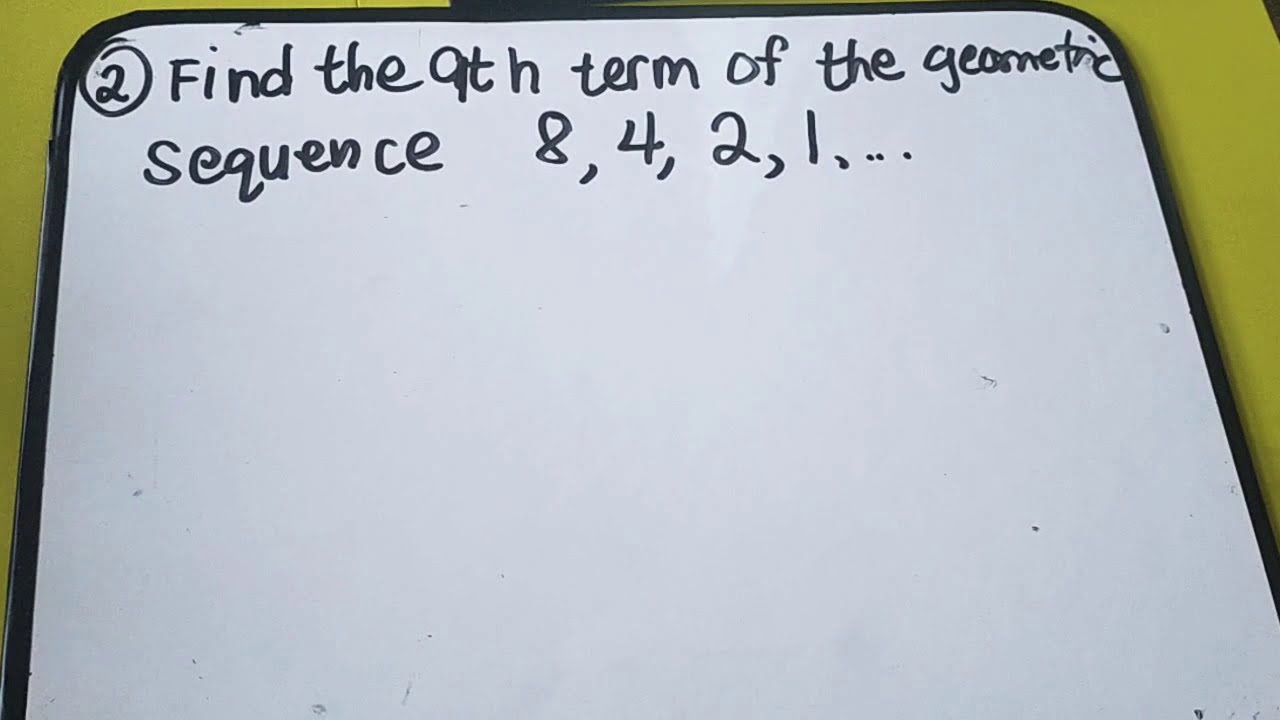 ② Find the 9th term of the geometric
sequence 8, 4, 2, 1, ...